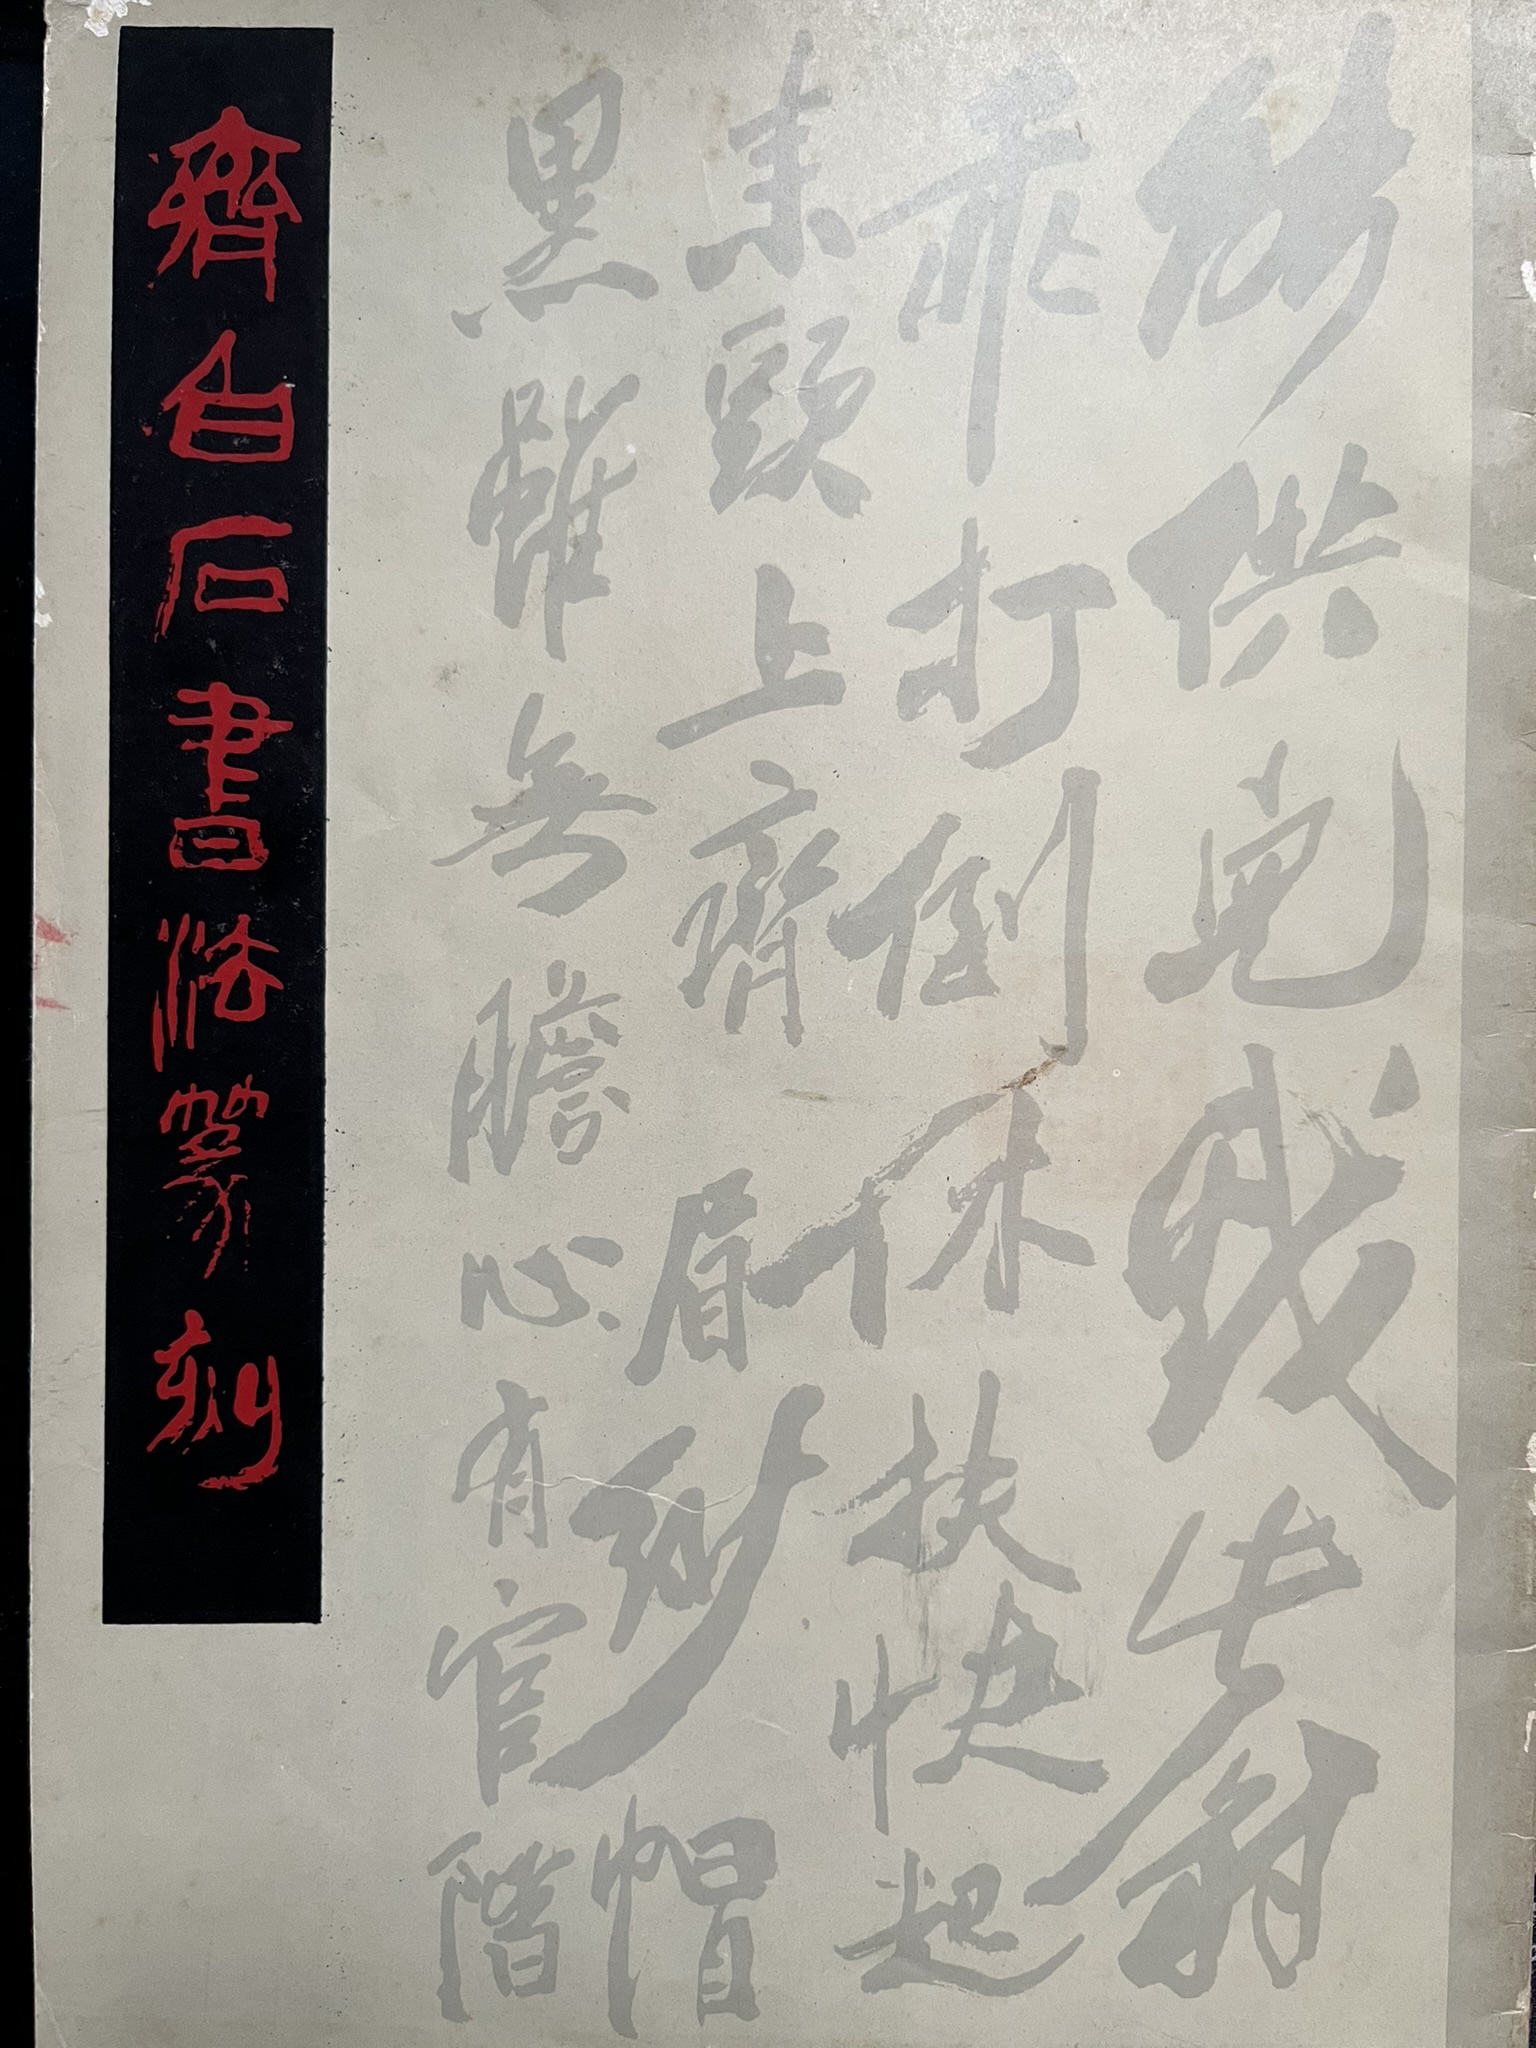 供兒戲此翁
乖打倒休扶快起
來頭上齊眉紗帽
黑雖無膽心有官階
齊白石書法篆刻